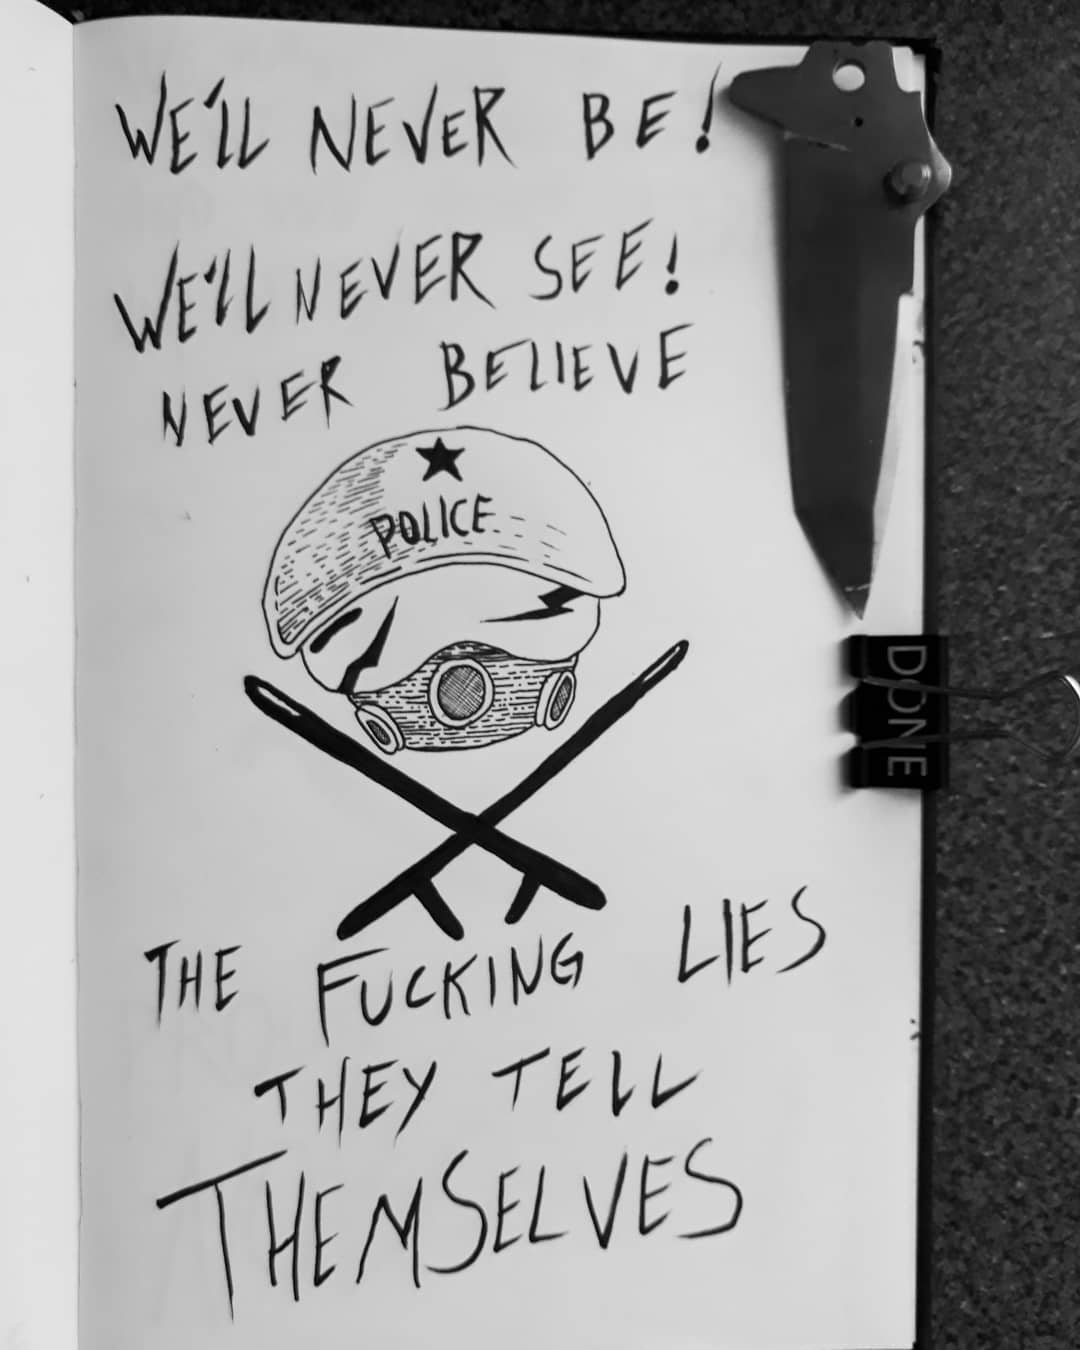 WE'LL NEVER BE!
WE'LL NEVER SEE!
NEVER BELIEVE
POLICE
DONE
THE FUCKING LIES
THEY TELL
THEMSELVES